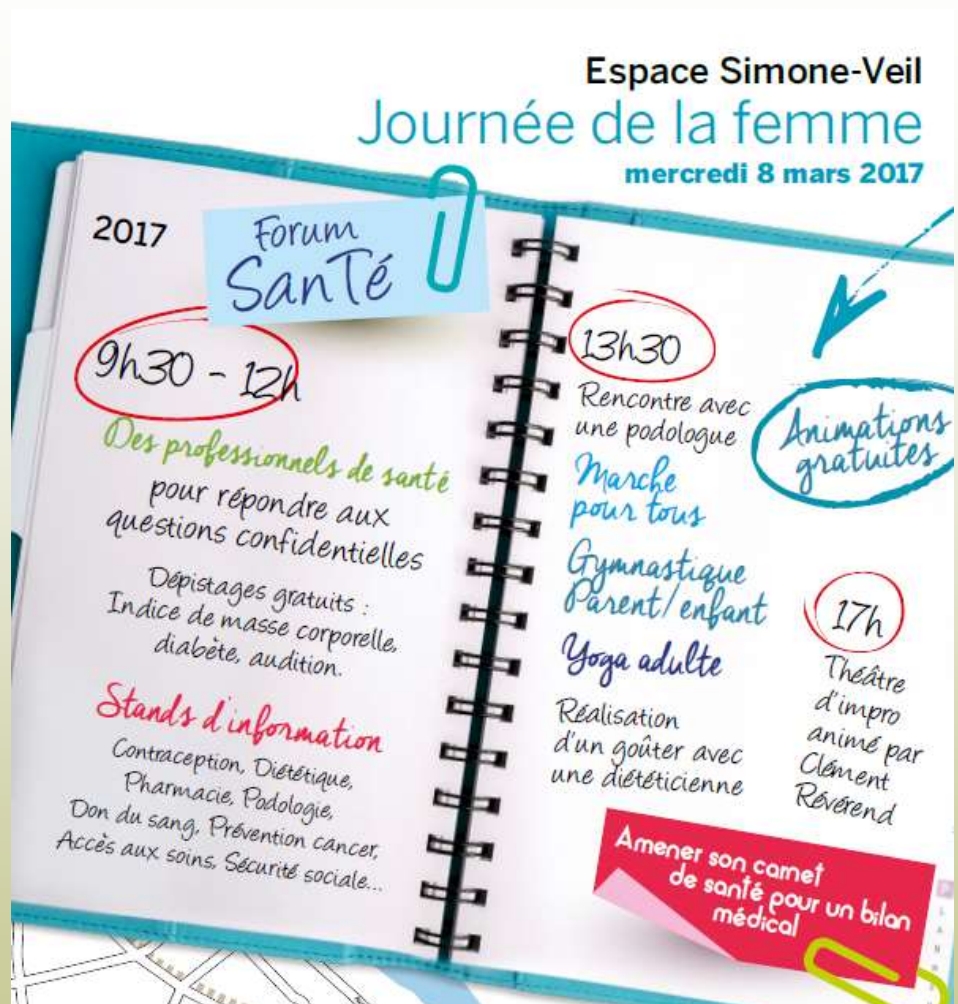 Espace Simone-Veil
Journée de la femme
mercredi 8 mars 2017
2017
Forum
Santé
9h30 - 12h
Des professionnels de santé
pour répondre aux
questions confidentielles
Dépistages gratuits :
Indice de masse corporelle,
diabète, audition.
Stands d'information
Contraception, Diététique,
Pharmacie, Podologie,
Don du sang, Prévention cancer,
Accès aux soins, Sécurité sociale...
13h30
Rencontre avec
une podologue
Marche
pour tous
Gymnastique
Parent/enfant
Yoga adulte
Réalisation
d'un goûter avec
une diététicienne
Animations
gratuites
17h
Théâtre
d'impro
animé par
Clément
Révérend
Amener son carnet
de santé pour un bilan
médical